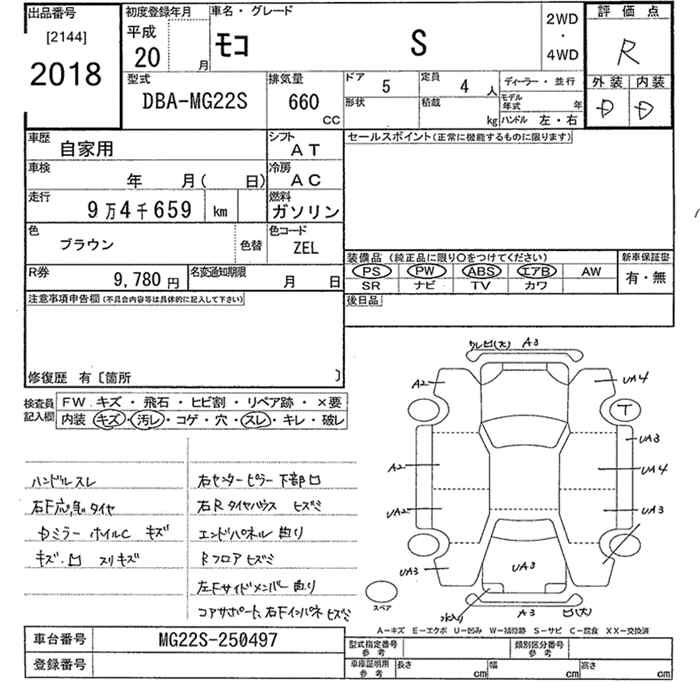 出品番号
[2144]
2018
初度登録年月
平成
20 月
車名・グレード
モコ S
2WD
・
4WD
評価点
R
外装 内装
D D
型式
DBA-MG22S
排気量
660
CC
ドア 5
定員 4 人
形状
積載 kg
ディーラー・並行
モデル年式 年
ハンドル 左・右
車歴
自家用
シフト
AT
車検
年 月( 日)
冷房
AC
走行
9万4千659 km
燃料
ガソリン
色
ブラウン
色替
色コード
ZEL
R券
9,780円
名変通知期限
月 日
セールスポイント(正常に機能するものに限ります)
装備品(純正品に限り○をつけてください)
新車保証書
PS PW ABS エアB AW
有・無
SR ナビ TV カワ
後日品
注意事項申告欄(不具合内容等は具体的に記入して下さい)
修復歴 有〔箇所 〕
検査員
記入欄
FW キズ・飛石・ヒビ割・リペア跡・×要
内装 キズ・汚レ・コゲ・穴・スレ・キレ・破レ
ハンドルスレ
右F応急タイヤ
Dミラー ホイルC キズ
キズ・凹 スリキズ
右センターピラー下部凹
右Rタイヤハウス ヒズミ
エンドパネル 曲り
Rフロア ヒズミ
左Fサイドメンバー 曲り
コアサポート、右Fインパネ ヒズミ
ワレヒ(大) A3
A2
UA4
T
UA3
A2
UA4
UA2
UA3
UA3
UA3
スペア
水入り
A3
ヒ(大)
A-キズ E-エクボ U-凹み W-補修跡 S-サビ C-腐食 XX-交換済
車台番号
MG22S-250497
登録番号
型式指定番号
参考
類別区分番号
参考
車庫証明用
参考
長さ cm
幅 cm
高さ cm